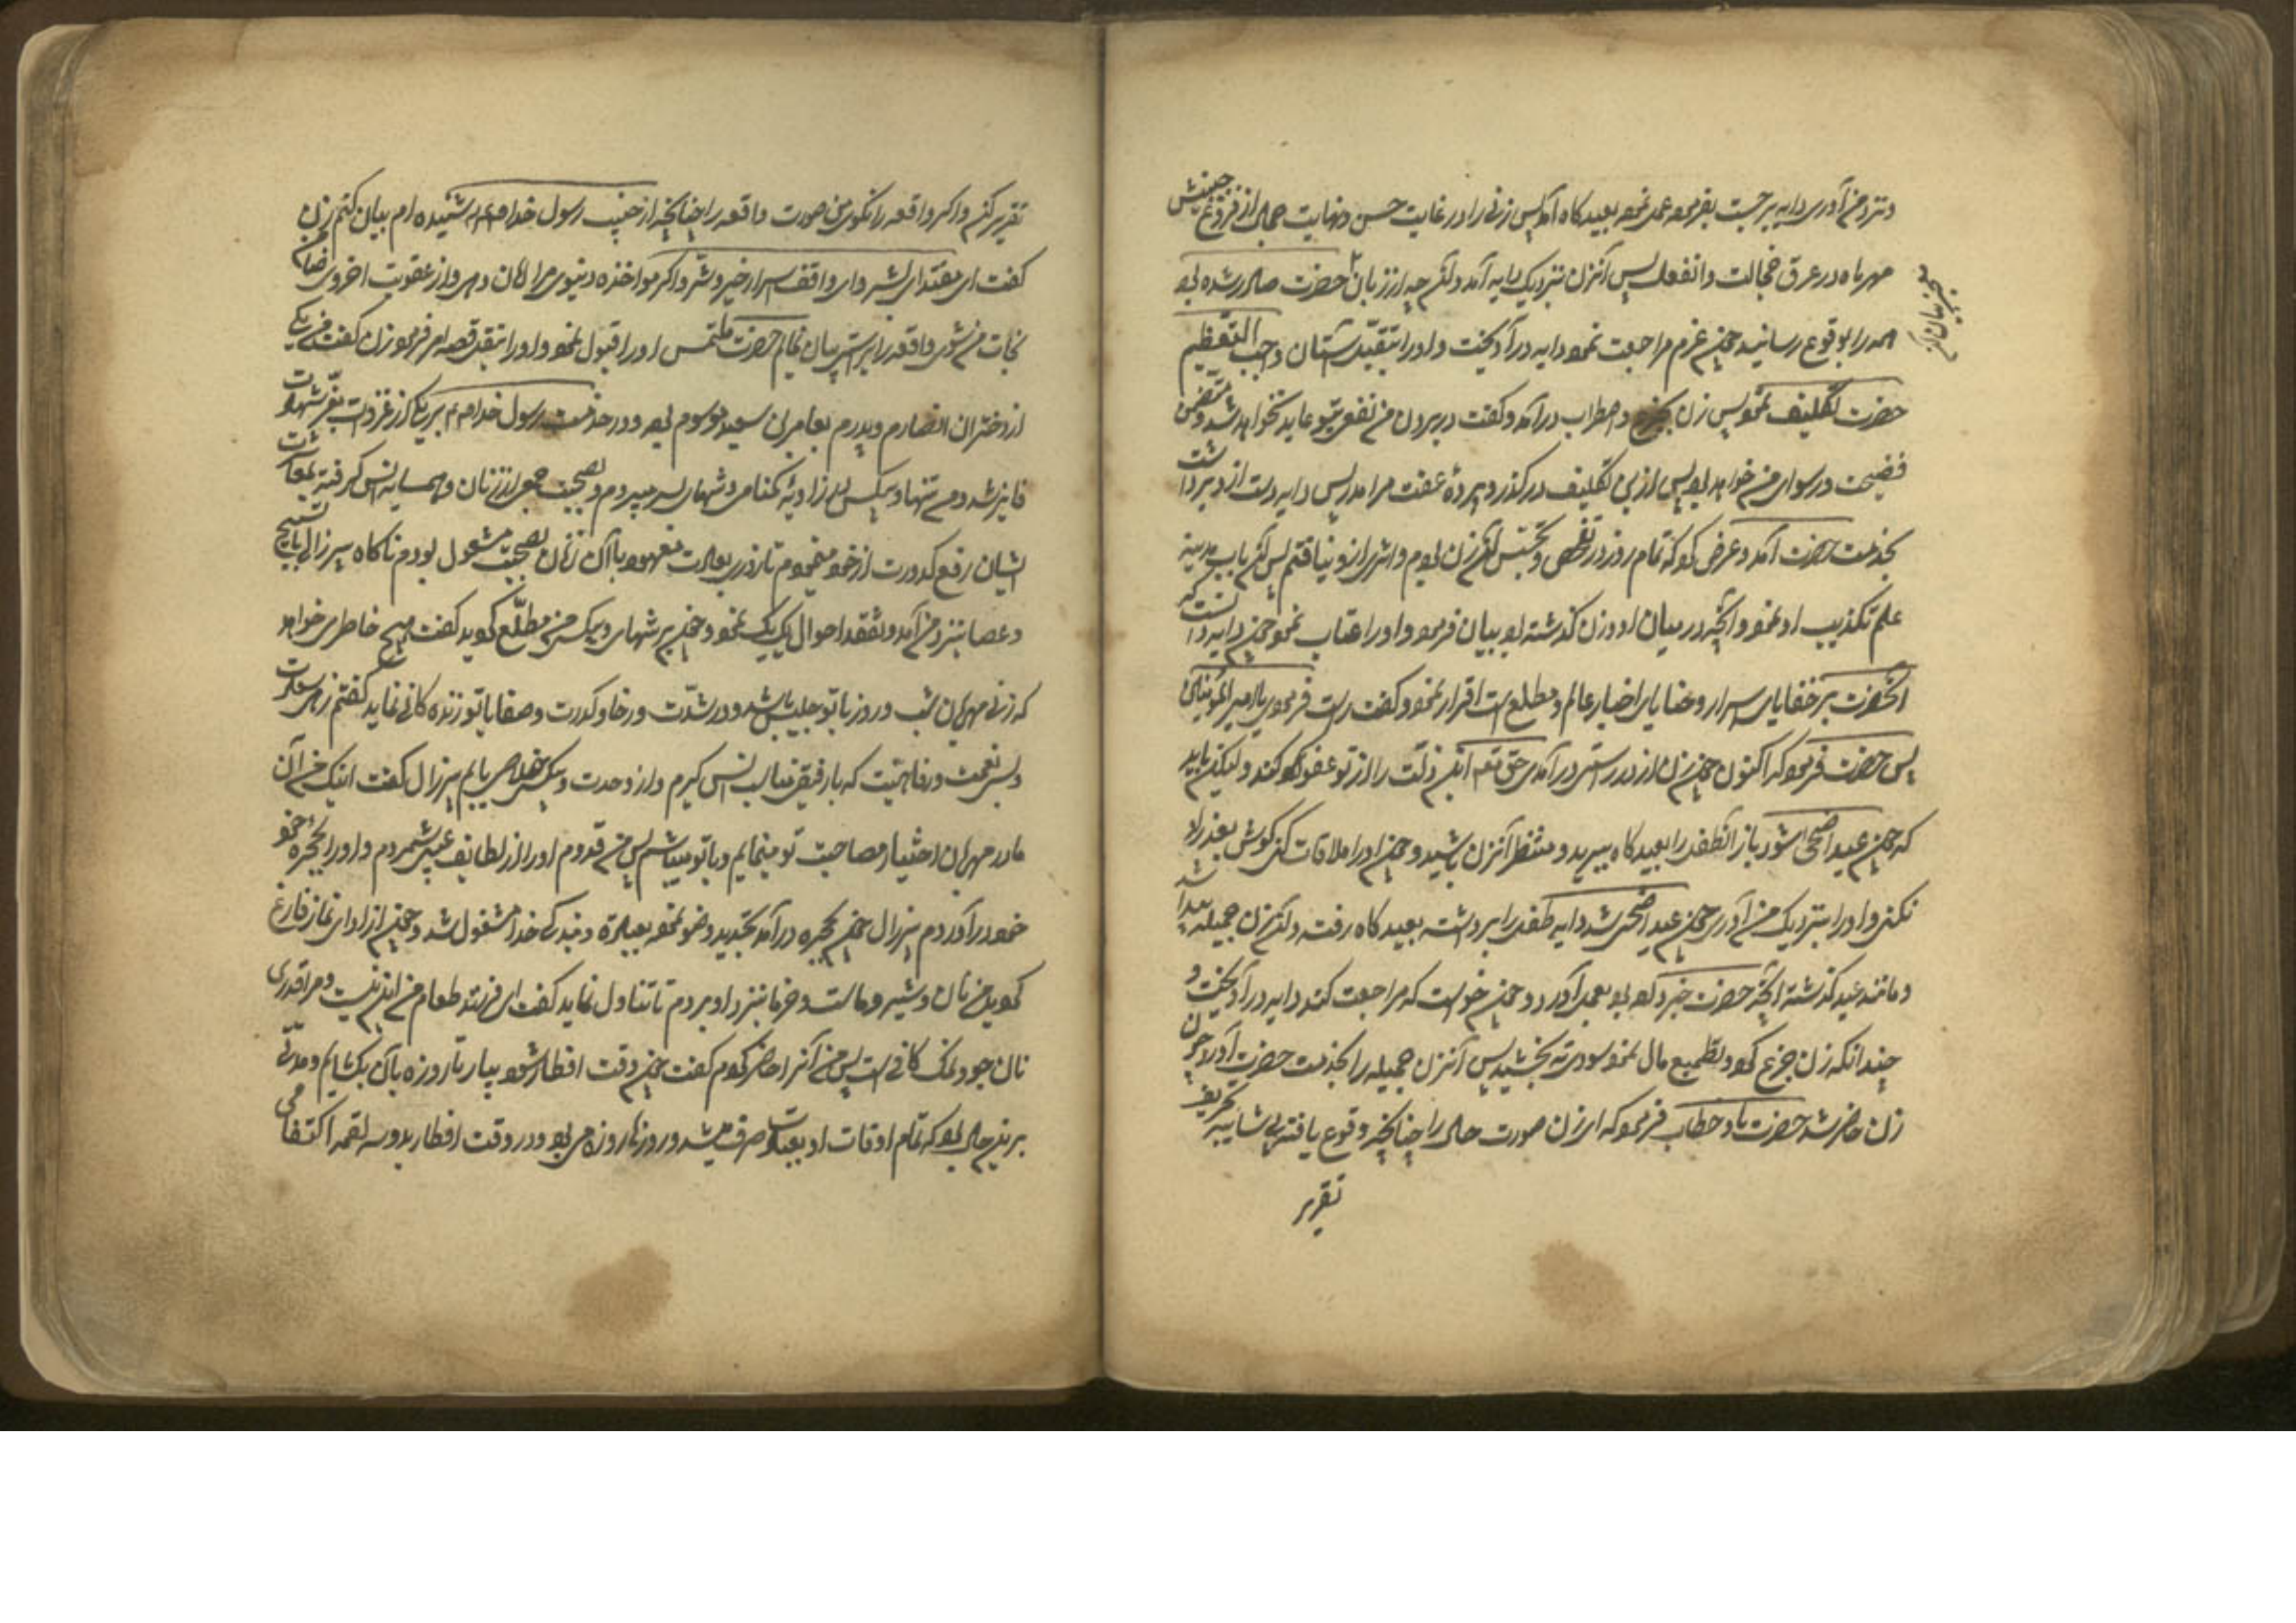 و نزد من آوری دایه بر حسب بفرموده عمل نموده بعیدگاه آمد پس زنی را در غایت حسن و نهایت جمال از فروغ جبینش
مهر و ماه در عرق خجالت و انفعال پس آن زن نزدیک دایه آمد و آنچه از زبان حضرت صادر شده بود
همه را بوقوع رسانید چون عزم مراجعت نمود دایه درآویخت و او را آستان واجب التعظیم
حضرت تکلیف نمود پس زن بجزع و اضطراب درآمد و گفت در بردن من نفعی بتو عاید نخواهد شد و
فضیحت و رسوای من خواهد بود پس ازین تکلیف درگذر و پردهٔ عفت مرا مدر پس دایه دست از وی برداشت
بخدمت حضرت آمد و عرض کرد که تمام روز در تفحص و تجسس آن زن بودم و اثری ازو نیافتم پس آن باب مدینه
علم تکذیب او نمود و آنچه در میان او و زن گذشته بود بیان فرمود و او را عتاب نمود چون دایه دانست که
آنحضرت بر خفایای اسرار و خبایای اخبار عالم و مطلع است اقرار نمود و گفت راست فرمودی یا امیر المؤمنین
پس حضرت فرمود که اکنون چون از در راستی درآمدی حق تعالی این زلت را از تو عفو کند و لیکن باید
که چون عید اضحی شود باز آن طفل را بعیدگاه ببرید و منتظر آن زن باشید و چون او را ملاقات کنی گوش بعذر او
نکنی و او را بنزدیک من آوری چون عید اضحی شد دایه طفل را برداشته بعیدگاه رفت و آن زن جمیله پیدا شد
و مانند عید گذشته آنچه حضرت خبر داده بود بعمل آورد و چون خواست که مراجعت کند دایه درآویخت و
چندانکه زن جزع کرد و تطمیع مال نمود سودی نه بخشید پس آن زن جمیله را بخدمت حضرت آورد چون
زن حاضر شد حضرت با او خطاب فرمود که ای زن صورت حال را چنانچه وقوع یافته بی شایبه تحریف
تقریر
تقریر کن و اگر واقعه را نگوی من صورت واقعه را چنانچه از حبیب رسول خدا شنیده ام بیان کنم زن
گفت ای مقتدای بشر و ای واقف اسرار خیر و شر اگر مواخذه دنیوی مرا امان دهی و از عقوبت اخروی ضامن
نجات من شوی واقعه را براستی بیان نمایم حضرت ملتمس او را قبول نمود و او را بنقل قصه امر فرمود زن گفت من یکی
از دختران انصارم و پدرم بعامر بن سعید موسوم بود و در خدمت رسول خدا در یکی از غزوات بعز شهادت
فایز شد و من تنها و بیکس در زاویهٔ گمنامی و شبهای بسر میبردم و بصحبت جمعی از زنان و همسایه انس گرفته بمعاشرت
ایشان رفع کدورت از خود مینمودم تا روزی بعادت معهوده با آن زنان بصحبت مشغول بودم ناگاه پیر زالی با تسبیح
و عصا بنزد من آمد و تفقد احوال یک یک نمود و چون بر تنهای و بیکسی من مطلع گردید گفت هیچ خاطر می خواهد
که زنی مهربان شب و روز با تو جلیس باشد و در شدت و رخا و کدورت و صفا با تو زندگانی نماید گفتم زهی سعادت
و بس نعمت و رفاهیت که با رفیق مناسب انس گیرم و از وحدت و بیکسی خلاصی یابم پیر زال گفت اینک من آن
مادر مهربان اختیار مصاحبت تو مینمایم و با تو میباشم پس من قدوم او را از لطایف غیبی شمردم و او را بحجرهٔ خود
خود درآوردم پیر زال چون بحجره درآمد تجدید وضو نموده بعبادت و بندگی خدا مشغول شد و چون از ادای نماز فارغ
گردید من نان و شیر و ماست و خرما بنزد او بردم تا تناول نماید گفت ای فرزند طعام من این نیست و مرا قدری
نان جو و نمک کافی است پس من آنرا حاضر کردم گفت چون وقت افطار شود بیار تا روزه بآن بگشایم و مدتی
برین حال بود که تمام اوقات او بعبادت صرف میشد و روزها روزه می بود و در وقت افطار بدو سه لقمه اکتفا می